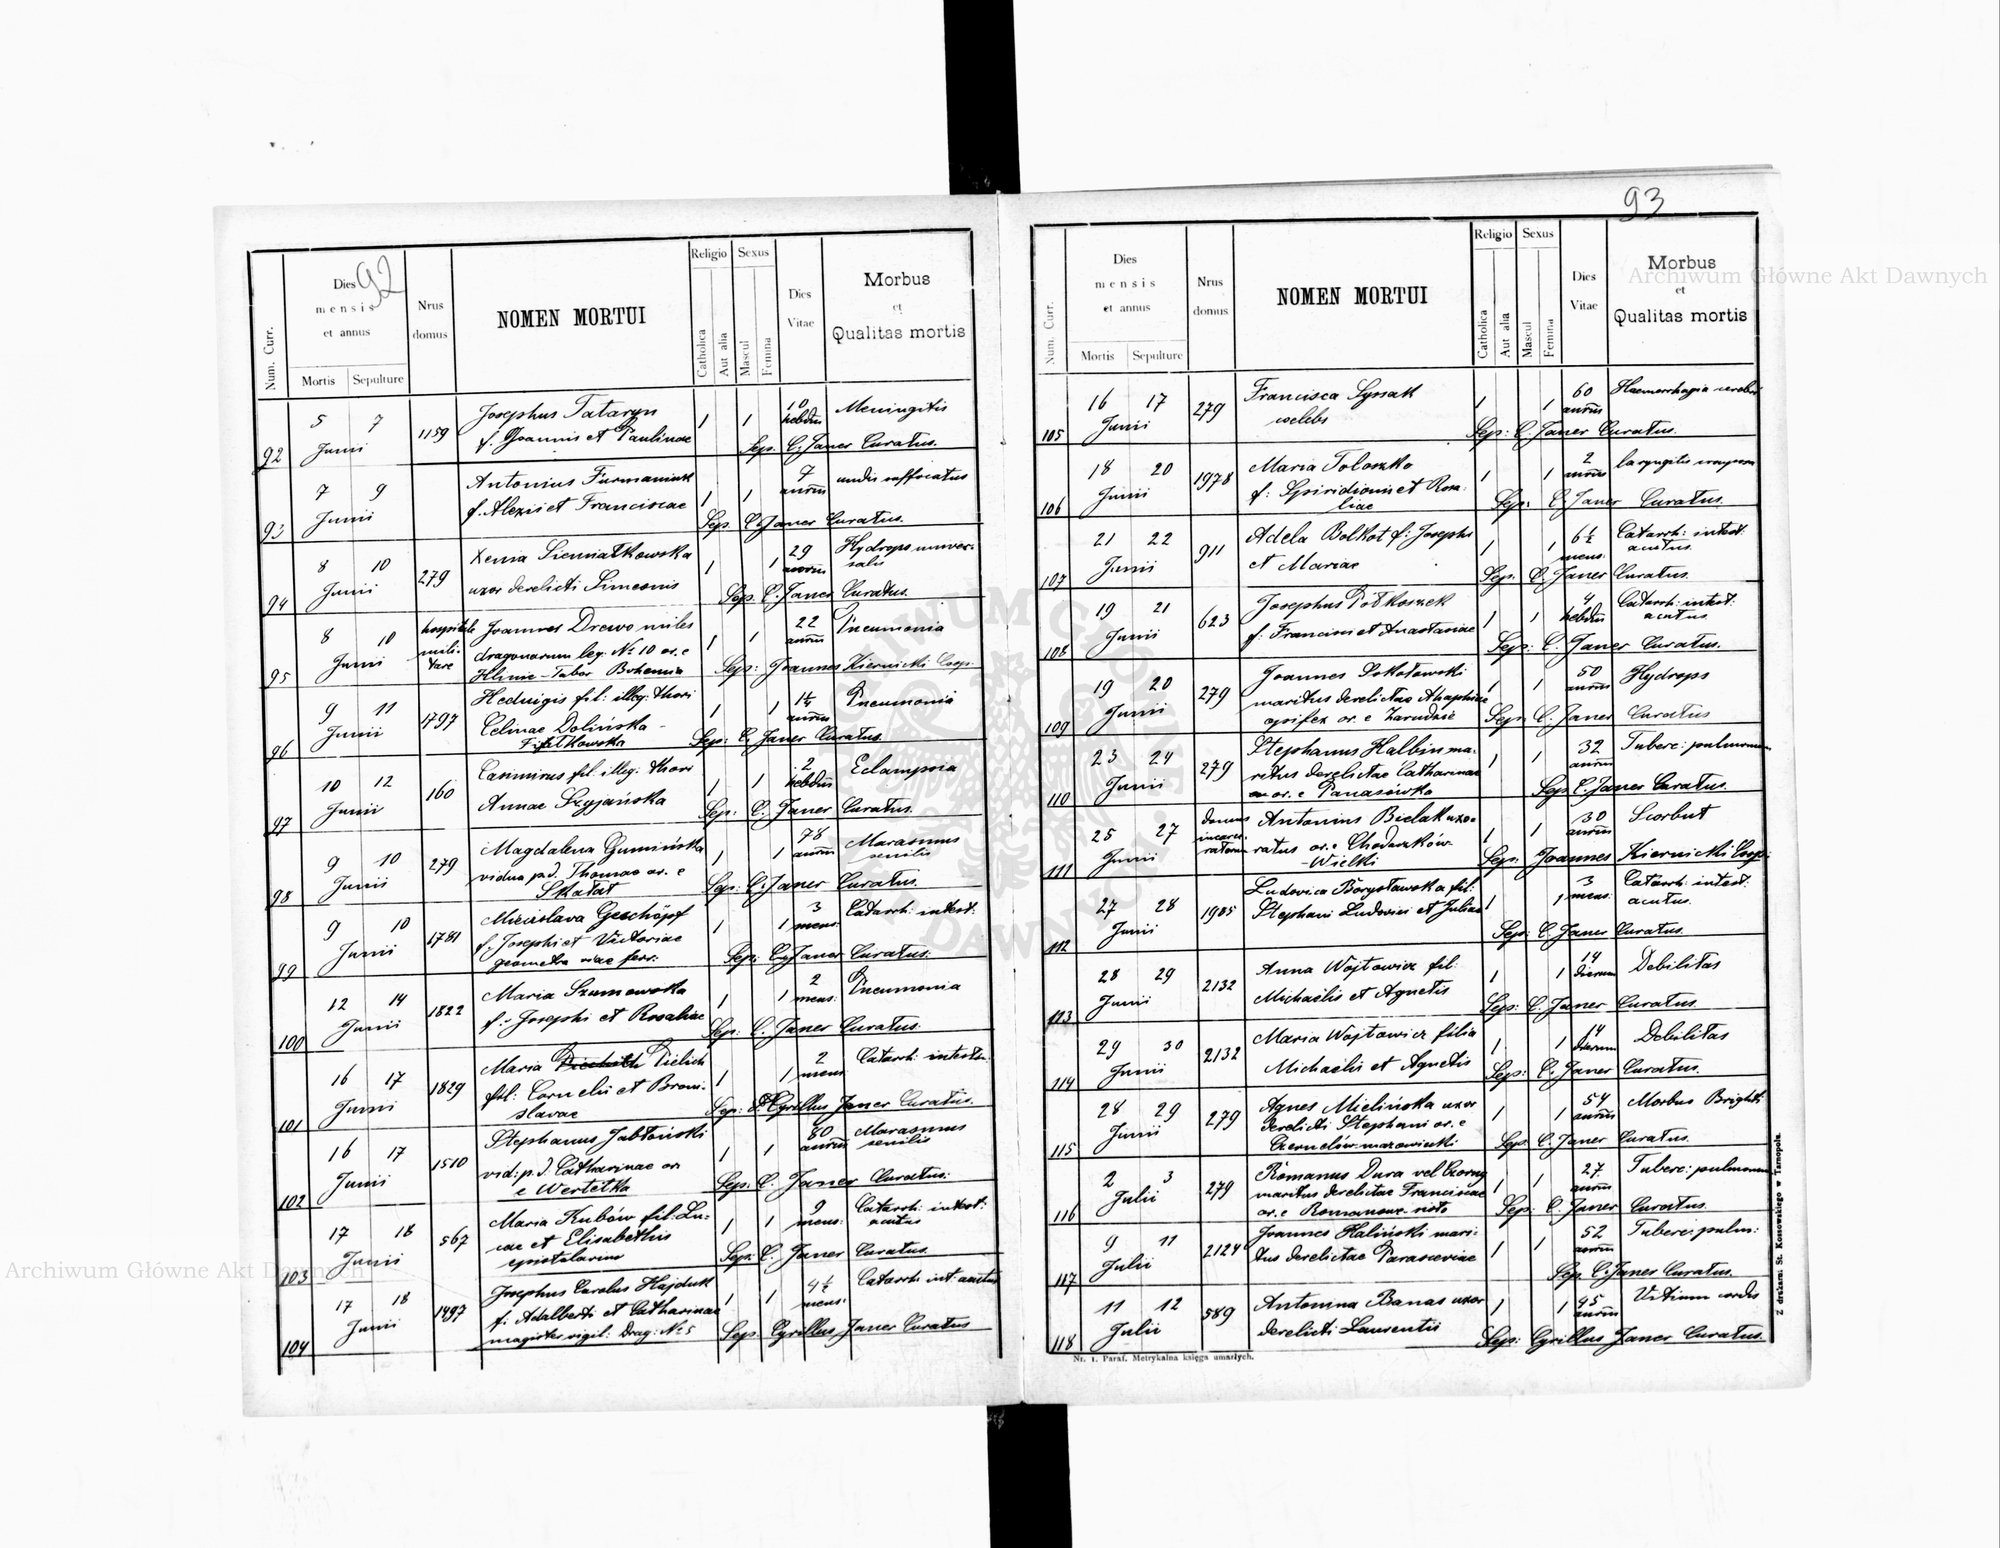 92
Num. Curr.
Dies
mensis
et annus
Mortis Sepulture
Nrus
domus
NOMEN MORTUI
Religio
Catholica
Aut alia
Sexus
Mascul
Femina
Dies
Vitae
Morbus
et
Qualitas mortis
92 5 7 Junii 1159 Josephus Tataryn 1 1 10 hebdm Meningitis
f. Joannis et Paulinae Sep. C. Janer Curatus.
93 7 9 Junii Antonius Furmaniuk 1 1 7 annm undis suffocatus
f. Alexii et Franciscae Sep. C. Janer Curatus.
94 8 10 Junii 279 Xenia Sienniatkowska 1 1 29 annm Hydrops univer-
salis
uxor derelicti Simeonis Sep. C. Janer Curatus.
95 8 10 Junii hospitale mili- tare Joannes Drewo miles 1 1 22 annm Pneumonia
dragonarum leg. No 10 or. e
Klinie - Tabor Bohemia Sep: Joannes Kiernicki Coop.
96 9 11 Junii 1797 Hedvigis fil: illeg. thori 1 1 1¼ annm Pneumonia
Celinae Dolińska -
Fiałkowska Sep: C. Janer Curatus.
97 10 12 Junii 160 Casimirus fil. illeg. thori 1 1 2 hebdm Eclampsia
Annae Szyjańska Sep: C. Janer Curatus.
98 9 10 Junii 279 Magdalena Gumińska 1 1 78 annm Marasmus
senilis
vidua p.d. Thomae or. e
Skałat Sep: C. Janer Curatus.
99 9 10 Junii 1781 Miecislava Geschöpf 1 1 3 mens: Catarrh: intest:
f. Josephi et Victoriae
geometra viae ferr: Sep: C. Janer Curatus.
100 12 14 Junii 1822 Maria Szumowska 1 1 2 mens: Pneumonia
f. Josephi et Rosaliae Sep: C. Janer Curatus.
101 16 17 Junii 1829 Maria Pielich 1 1 2 mens Catarrh: intestin.
fil: Cornelii et Broni-
slavae Sep: Cyrillus Janer Curatus.
102 16 17 Junii 1510 Stephanus Jabłoński 1 1 80 annm Marasmus
senilis
vid: p.d. Catharinae or.
e Wertełka Sep. C. Janer Curatus.
103 17 18 Junii 567 Maria Kubów fil: Lu- 1 1 9 mens: Catarrh: intest:
acutus
cae et Elisabethis
epistolarius Sep: C. Janer Curatus.
104 17 18 Junii 1497 Josephus Carolus Hajduk 1 1 4½ mens: Catarrh int: acutus
f: Adalberti et Catharinae
magister vigil: Drag: No 5 Sep: Cyrillus Janer Curatus
93
Num. Curr.
Dies
mensis
et annus
Mortis Sepulture
Nrus
domus
NOMEN MORTUI
Religio
Catholica
Aut alia
Sexus
Mascul
Femina
Dies
Vitae
Morbus
et
Qualitas mortis
105 16 17 Junii 279 Francisca Lyssak 1 1 60 annm Haemorrhagia cerebri
coelebs Sep: C. Janer Curatus.
106 18 20 Junii 1978 Maria Toloszko 1 1 2 annm laryngitis crouposa
f: Spiridionis et Rosa-
liae Sep: C. Janer Curatus.
107 21 22 Junii 911 Adela Bolkot f: Josephi 1 1 6½ mens: Catarrh: intest:
acutus.
et Mariae Sep. C. Janer Curatus.
108 19 21 Junii 623 Josephus Połkoszek 1 1 4 hebdm Catarrh: intest:
acutus
f: Francisci et Anastasiae Sep: C. Janer Curatus.
109 19 20 Junii 279 Joannes Sokołowski 1 1 50 annm Hydrops
maritus derelictae Ahaphiae
opifex or. e Zarudzie Sep: C. Janer Curatus
110 23 24 Junii 279 Stephanus Halbin ma- 1 1 32 annm Tuberc: pulmonum
ritus derelictae Catharinae
or. e Panasówka Sep C. Janer Curatus.
111 25 27 Junii domus incarce- ratorum Antonius Bielak uxo- 1 1 30 annm Scorbut
ratus or. e Chodaczków-
Wielki Sep. Joannes Kiernicki Coop:
112 27 28 Junii 1905 Ludovica Borysławska fil: 1 1 3 mens: Catarrh: intest:
acutus.
Stephani Ludovici et Juliae Sep: C. Janer Curatus.
113 28 29 Junii 2132 Anna Wojtowicz fil: 1 1 14 dierum Debilitas
Michaelis et Agnetis Sep: C. Janer Curatus.
114 29 30 Junii 2132 Maria Wojtowicz filia 1 1 14 dierum Debilitas
Michaelis et Agnetis Sep: C. Janer Curatus.
115 28 29 Junii 279 Agnes Mielińska uxor 1 1 54 annm Morbus Brighti
derelicti Stephani or. e
Czernelów-mazowiecki Sep: C. Janer Curatus.
116 2 3 Julii 279 Romanus Dura vel Czorny 1 1 27 annm Tuberc: pulmonum
maritus derelictae Franciscae
or. e Romanowe-sioło Sep: C. Janer Curatus.
117 9 11 Julii 2124 Joannes Haliński mari- 1 1 52 annm Tuberc: pulm:
tus derelictae Parasceviae Sep. C. Janer Curatus.
118 11 12 Julii 589 Antonina Banas uxor 1 1 45 annm Vitium cordis
derelicti Laurentii Sep: Cyrillus Janer Curatus.
Nr. 1. Paraf. Metrykalna księga umarłych.
Z drukarni St. Kossowskiego w Tarnopolu.
Archiwum Główne Akt Dawnych
Archiwum Główne Akt Dawnych